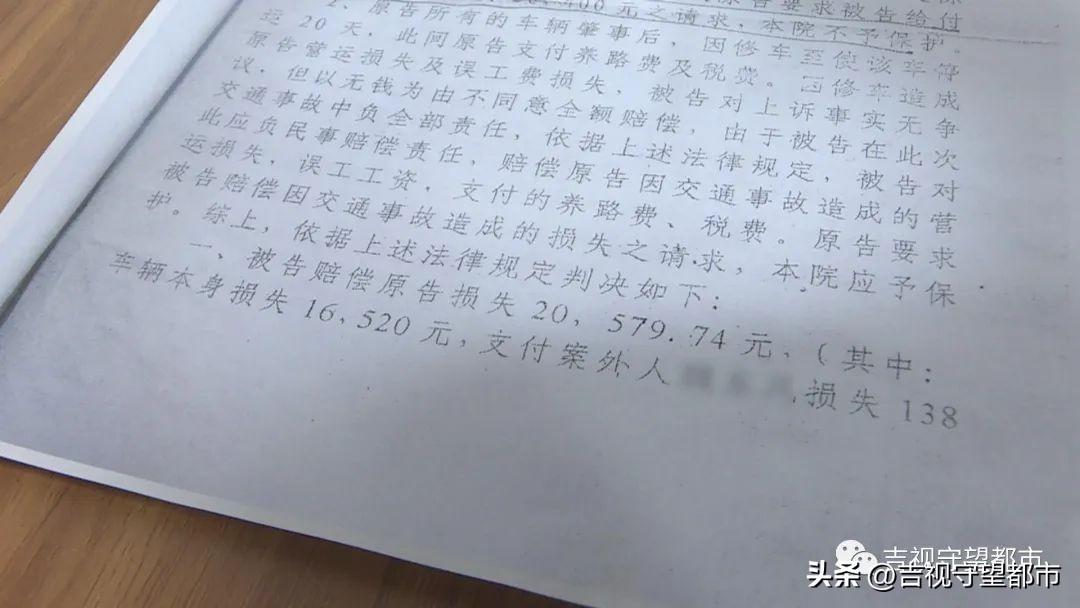 告要求被告给付
400元之请求,本院不予保护。
2、原告所有的车辆肇事后,因修车至使该车停
运20天,此间原告支付养路费及税费。因修车造成
原告营运损失及误工费损失,被告对上诉事实无争
议,但以无钱为由不同意全额赔偿,由于被告在此次
交通事故中负全部责任,依据上述法律规定,被告对
此应负民事赔偿责任,赔偿原告因交通事故造成的营
运损失,误工工资,支付的养路费、税费。原告要求
被告赔偿因交通事故造成的损失之请求,本院应予保
护。综上,依据上述法律规定判决如下:
一、被告赔偿原告损失20,579.74元,(其中:
车辆本身损失16,520元,支付案外人 损失138
吉视守望都市
头条@吉视守望都市